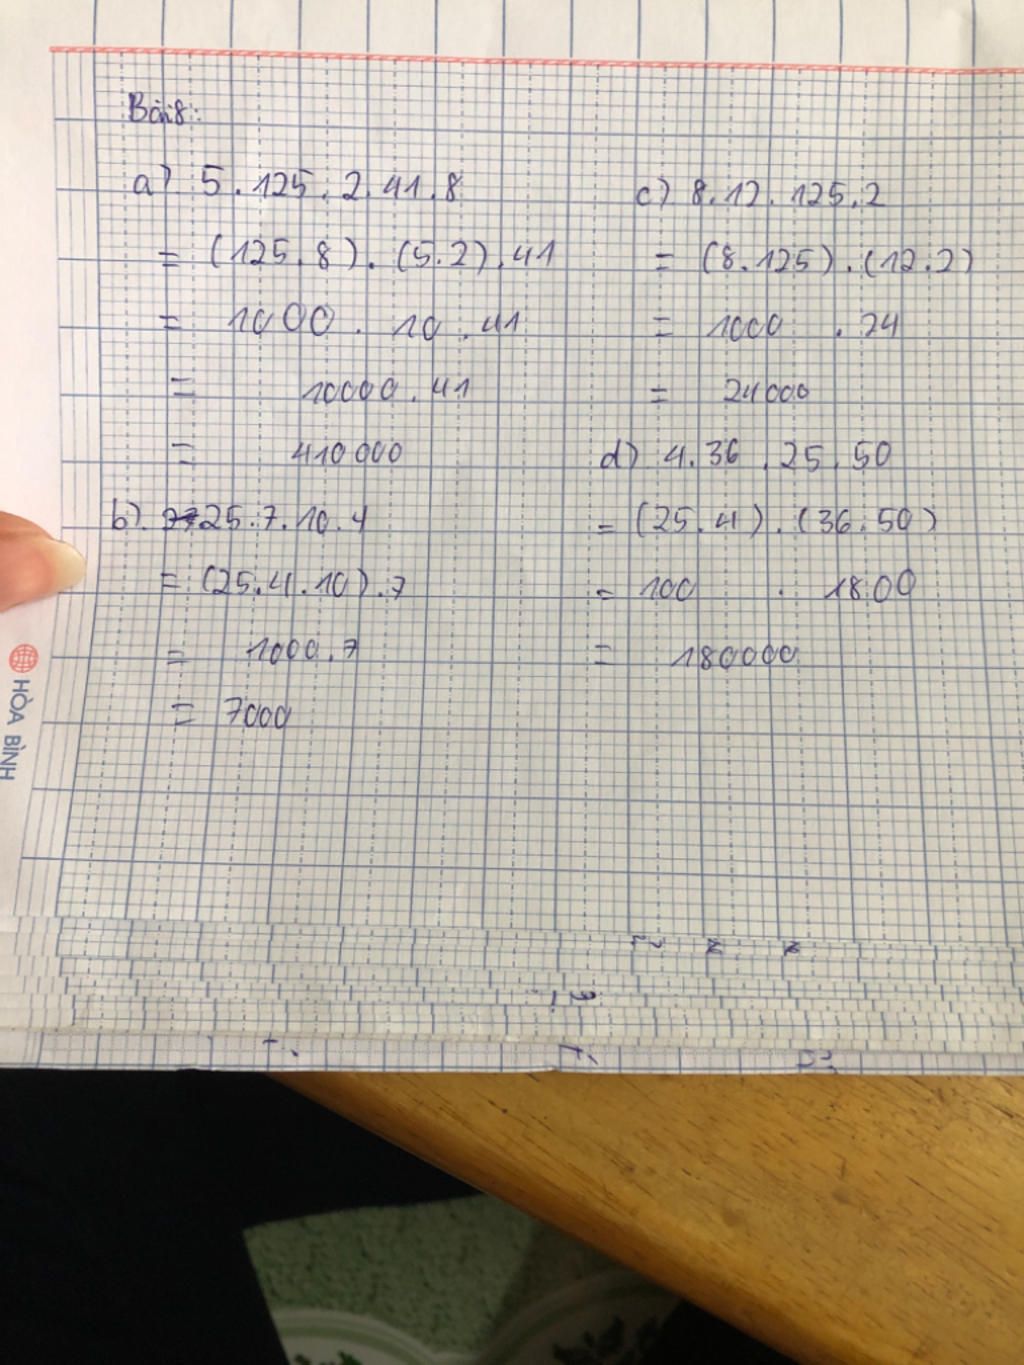 Bài 8:
a) 5.125.2.41.8
= (125.8).(5.2).41
= 1000.10.41
= 10000.41
= 410000
b) 25.7.10.4
= (25.4.10).7
= 1000.7
= 7000
c) 8.12.125.2
= (8.125).(12.2)
= 1000.24
= 24000
d) 4.36.25.50
= (25.4).(36.50)
= 100.1800
= 180000
HÒA BÌNH